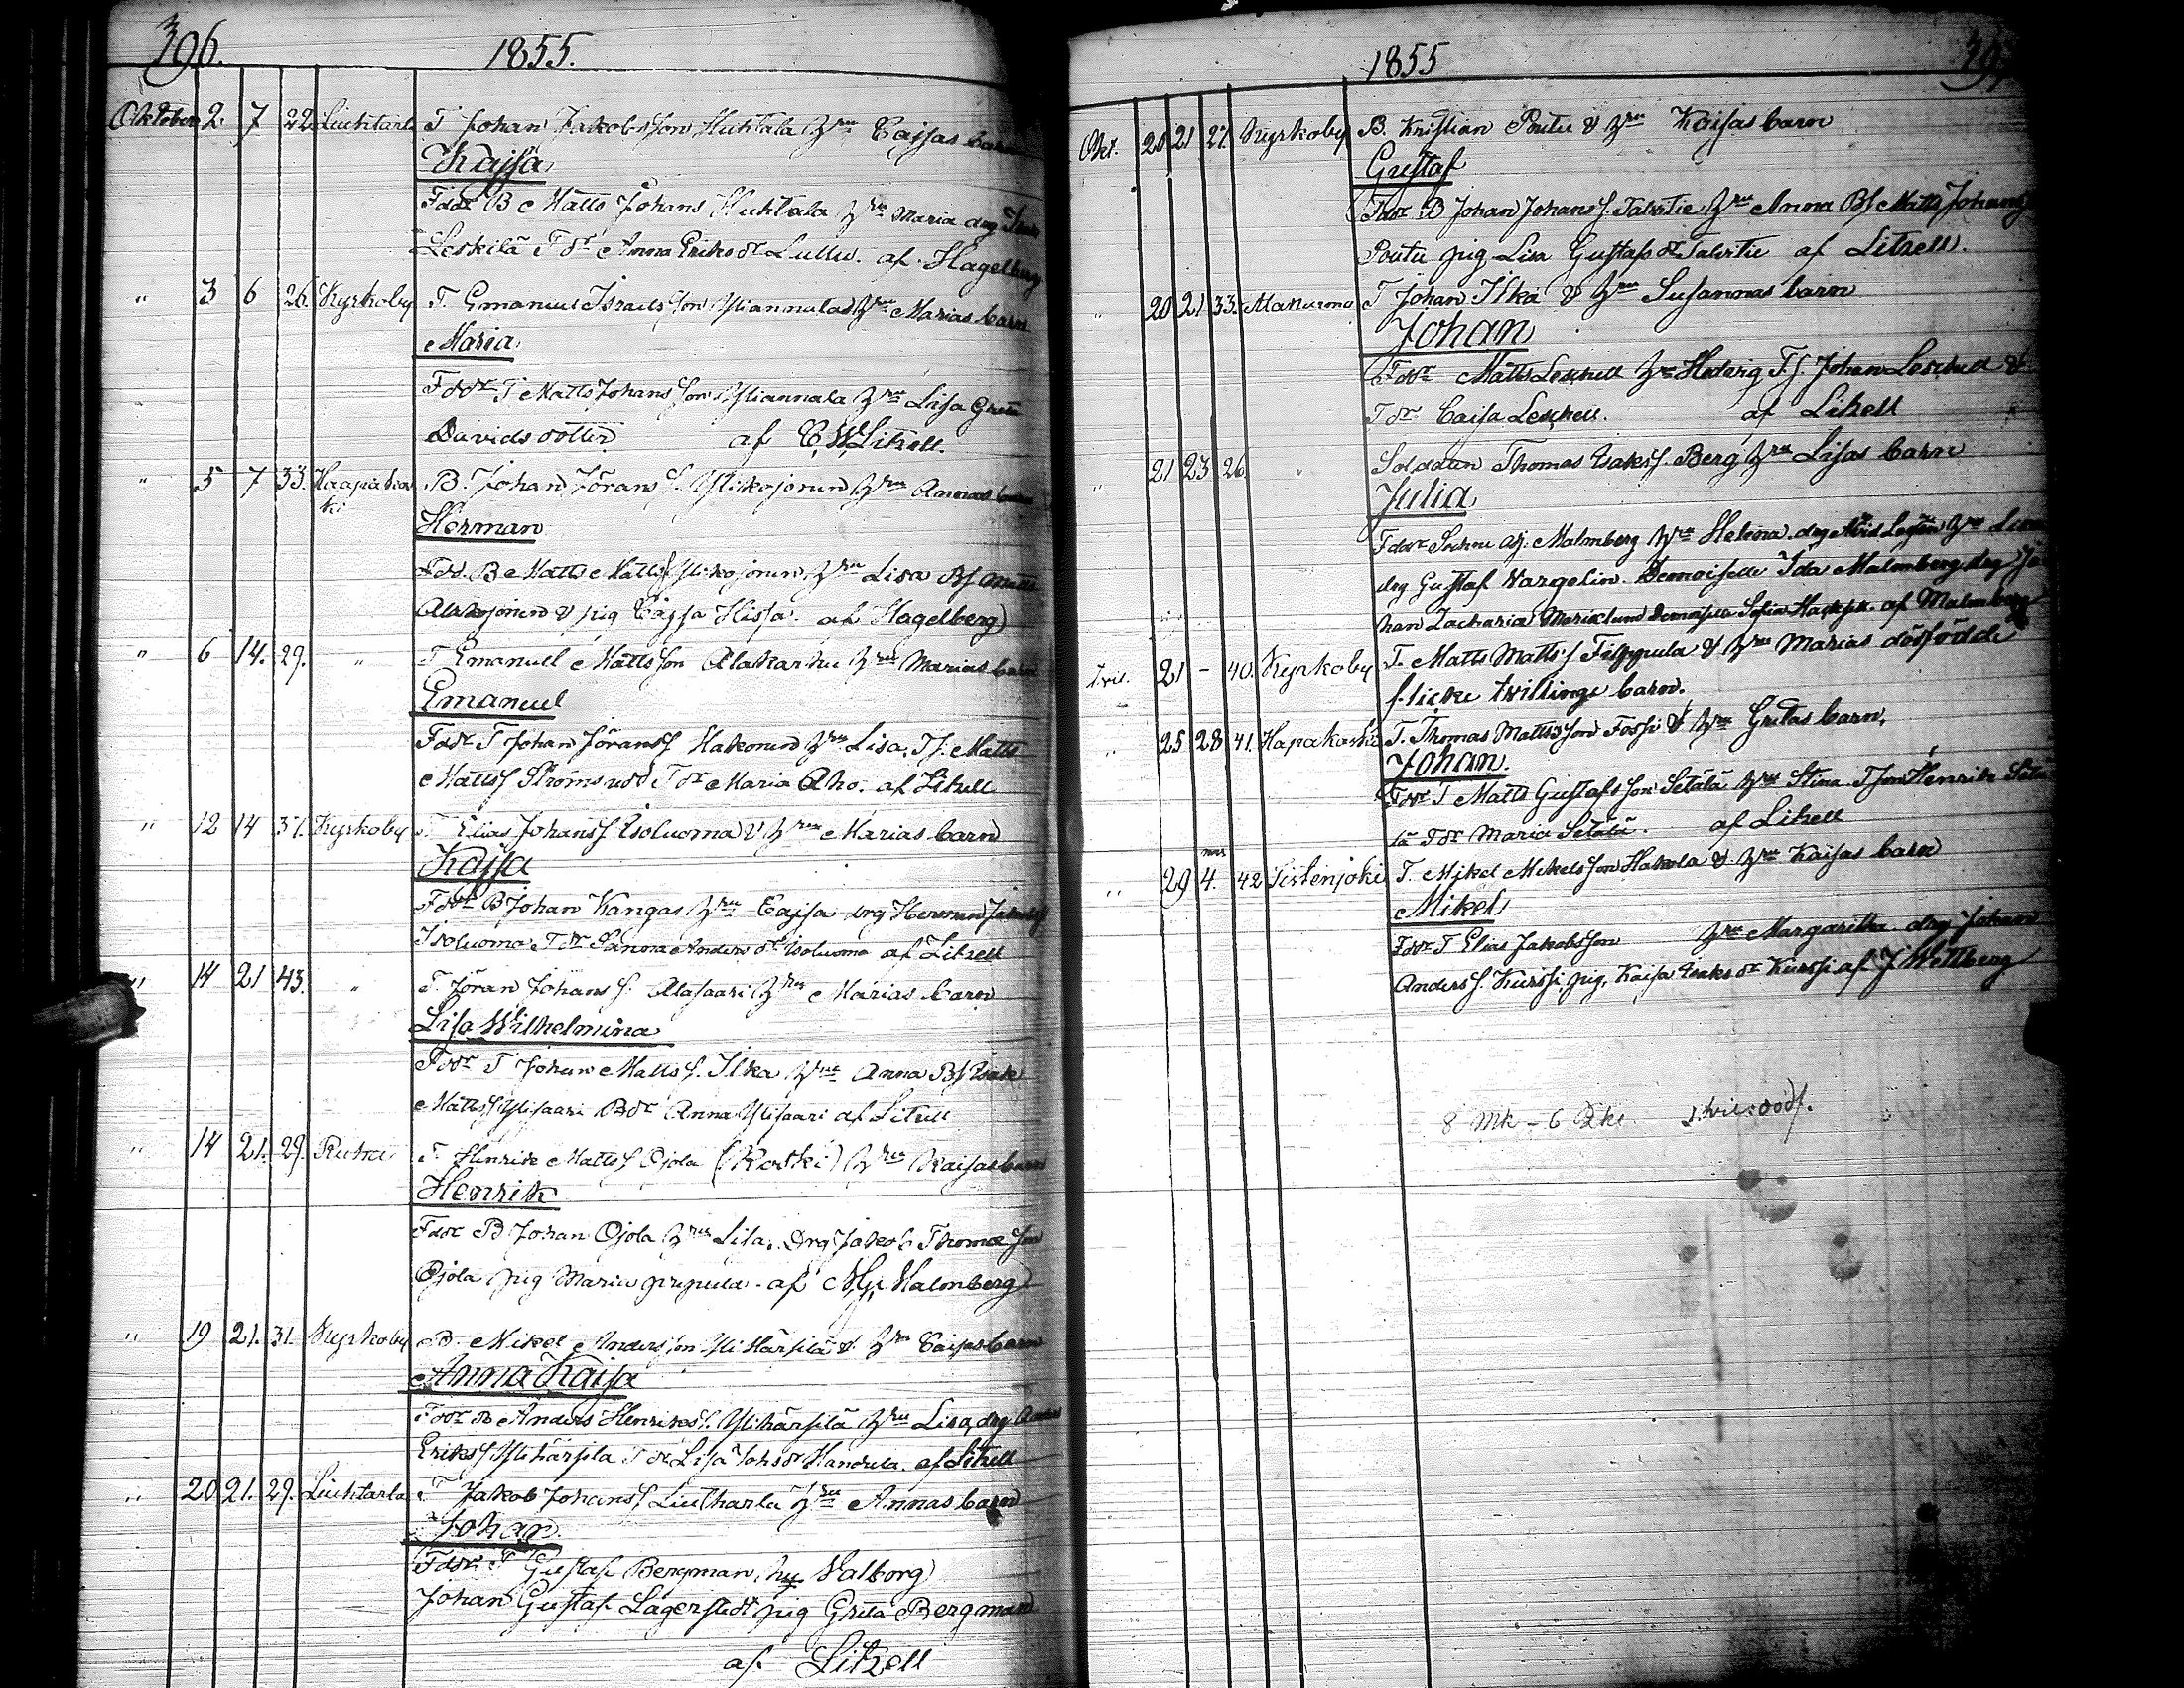 396.
1855.
Oktober 2. 7 22 Liuhtarla T Johan Jakobsson Huhtala Hru Cajsas barn
Kajsa
Fddr B Matts Johans Huhtala Hru Maria drg
Leskilä T dr Anna Eriksdr Lullu. af Hagelberg
" 3 6 26. Kyrkoby T. Emanuel Israelsson Yliannulas Hru Marias barn
Maria
Fddr T Matts Johansson Yliannala Hru Lisa Greta
Davidsdotter af C. W. Litzell.
" 5 7 33. Haapakos B. Johan Jörans S. Ylikojonen Hru Annas barn
ki
Herman
Fdd. B Matts Matts S Ylikojonen Hru Lisa BS
Alakojonen & pig Cajsa Hissa. af Hagelberg
" 6 14. 29. " T Emanuel Mattsson Alakarhu Hru Marias barn
Emanuel
Fddr T Johan Jörans S Hakonen Hru Lisa. TS. Matts
Matts S Strömsudd T dr Maria Aho. af Litzell
" 12 14 37. Kyrkoby T. Elias Johans S Isoluoma & Hru Marias barn
Kajsa
Fddr B Johan Kangas Hru Cajsa drg Herman Jakobs S
Isoluoma T dr Sanna Anders dr Isoluoma af Litzell
" 14 21 43. " T. Jöran Johans S. Alasaari Hru Marias barn
Lisa Wilhelmina
Fddr T Johan Matts S. Ilka Hru Anna BS Isak
Matts S Ylisaari Bdr Anna Ylisaari af Litzell
" 14 21. 29. Ruha T. Henrik Matts S Ojola (Koski) Hru Kaisas barn
Henrik
Fddr B Johan Ojola Hru Lisa. Drg Jakob Thomæ son
Ojola pig Maria af Malmberg
" 19 21. 31. Kyrkoby B. Mikel Andersson Yli Härsilä & Hru Caisas barn
Anna Kaisa
Fddr B Anders Henriks S. Ylihärsilä Hru Lisa, drg
Eriks S Ylihärsila T dr Lisa Johs dr Handula. af Litzell
" 20 21. 29. Liuhtarla T Jakob Johans S Liutharla Hru Annas barn
Johan.
Fddr T Gustaf Bergman, hu Valborg
Johan Gustaf Lagerstedt pig Greta Bergman
af Litzell
1855
397
Okt. 20 21 27. Kyrkoby B. Kristian Poutu & Hru Kaisas barn
Gustaf
Fddr B Johan Johans S. Talvitie Hru Anna BS Matts Johans S
Poutu pig Lisa Gustafs dr Talvitie af Litzell.
" 20 21 33. Makuoma T Johan Ilka & Hru Susannas barn
Johan
Fddr Matts Leskell Hru Hedvig TS. Johan Leskell &
T dr Caisa Leskell. af Litzell
" 21 23 26. " Soldaten Thomas Isaks S. Berg Hru Lisas barn
Julia
Fddr adj. Malmberg Hru Helena. drg Hru
drg Gustaf Vargelin. Demoiselle Ida Malmberg drg Jo
han Zacharia Marklund Demoiselle Sofia af Malmberg
tvil. 21 - 40. Kyrkoby T. Matts Matts S Filppula & Hru Marias dödfödde
flicke tvillinge barn.
" 25 28 41. Hapakoski T. Thomas Mattsson Fossi & Hru Gretas barn,
Johan.
Fddr T Matts Gustafsson Setälä Hru Stina Tson Henrik Setä
lä T dr Maria Setälä. af Litzell
nov.
" 29 4. 42 Tistenjoki T. Mikel Mikelsson Hakola & Hru Kaisas barn
Mikel
Fddr T Elias Jakobsson Hru Margaretha drg Johan
Anders S. Kurssi, pig. Kaisa Isaks dr Kurssi af J Wettberg
8 Mk - 6 Qk.